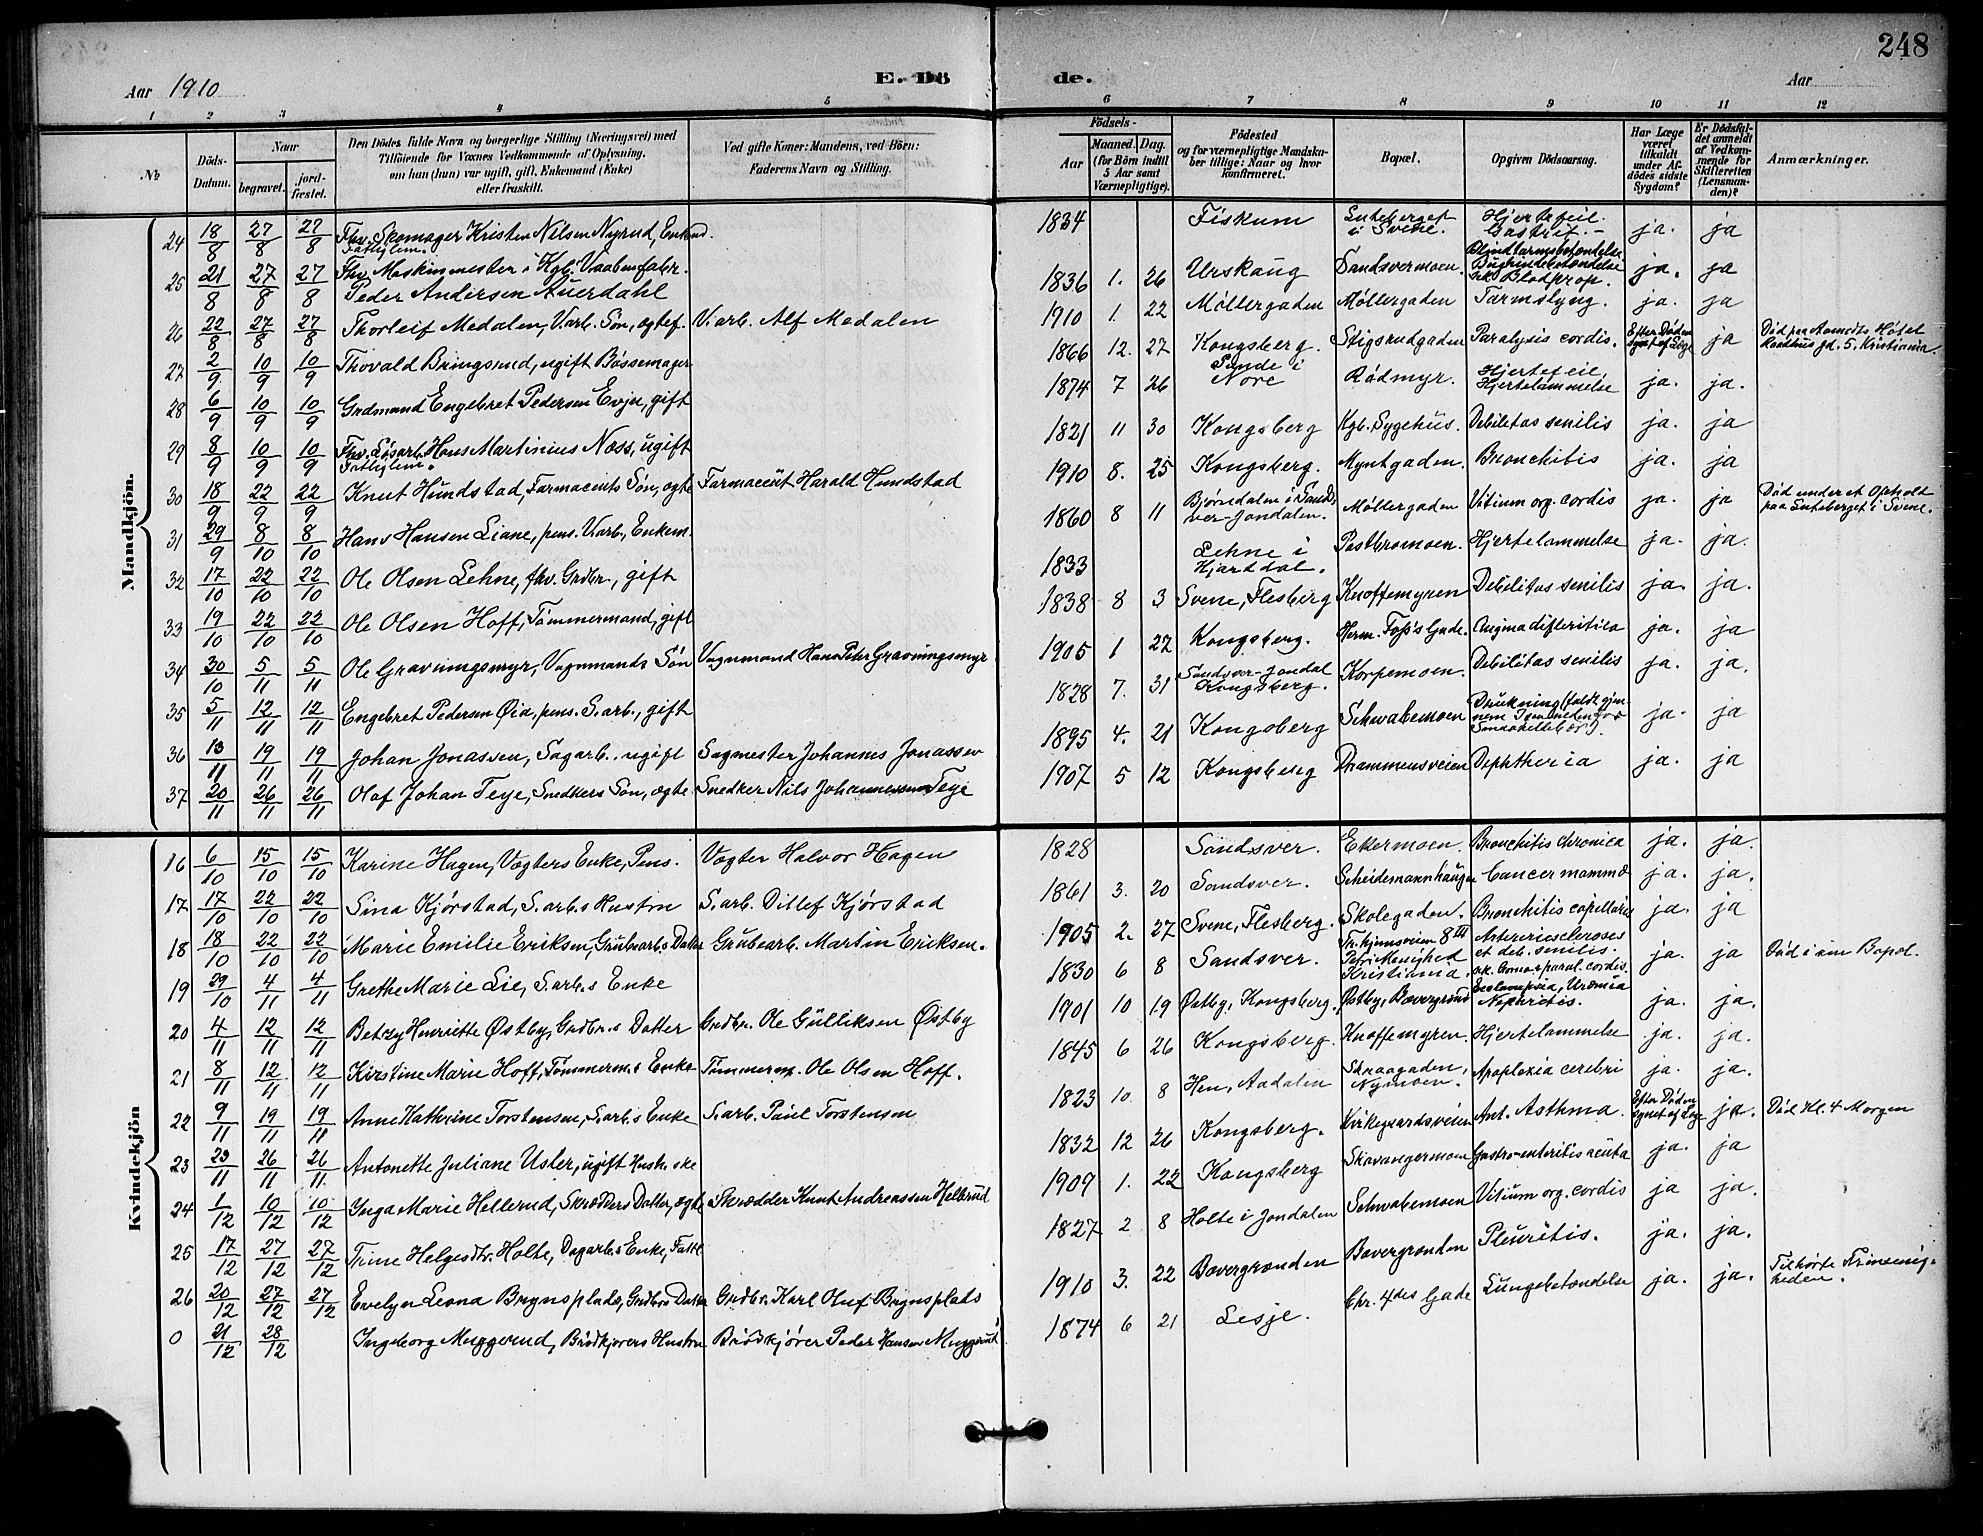 248
Aar 1910
E. Dö de.
Aar
1 2 3 4 5 6 7 8 9 10 11 12
No
Döds-Datum.
Naar
begravet.
jord-fæstet.
Den Dödes fulde Navn og borgerlige Stilling (Næringsvei) med
Tilföiende for Voxnes Vedkommende af Oplysning,
om han (hun) var ugift, gift, Enkemand (Enke)
eller fraskilt.
Ved gifte Koner: Mandens, ved Börn:
Faderens Navn og Stilling.
Födsels-
Aar
Maaned. Dag.
(for Börn indtil
5 Aar samt
Værnepligtige).
Födested
og for værnepligtige Mandska-
ber tillige: Naar og hvor
konfirmeret.
Bopæl.
Opgiven Dödsaarsag.
Har Læge
været
tilkaldt
under Af-
dödes sidste
Sygdom?
Er Dödsfal-
det anmeldt
af Vedkom-
mende for
Skifteretten
(Lensman-
den)?
Anmærkninger.
Mandkjön.
24 18/8 27/8 27/8 Fhv. Skomager Kristen Nilsen Nyrud, Enkmd. Fattiglem. 1834 Fiskum Luteberget i Svene. Hjertefeil. Gastrit.- ja. ja
25 21/8 27/8 27/8 Fhv. Maskinmester i Kgb. Vaabenfabr. Peder Andersen Auerdahl 1836 1. 26 Urskaug Sandsvermoen. Blindtarmsbetændelse Bughindebetændelse Blodprop. ja. ja
26 22/8 27/8 27/8 Thorleif Medalen, V.arb. Søn, ægtef. V.arb. Alf Medalen 1910 1 22 Møllergaden Møllergaden Tarmslyng. ja. ja
27 2/9 10/9 10/9 Thovald Bringsrud, ugift Bøssemager 1866 12. 27 Kongsberg. Stigsrudgaden Paralysis cordis. Efter Døden synet af Læge ja Død paa Aamodts Hotel Raadhusgd. 5. Kristiania.
28 6/9 10/9 10/9 Grdmand Engebret Pedersen Evju, gift 1874 7 26 i Nore Rødmyr. Hjertefeil, Hjertelammelse ja. ja.
29 8/9 10/9 10/9 Fhv. Løsarb. Hans Martinius Næss, ugift Fattiglem. 1821 11 30 Kongsberg Kgb. Sygehus. Debilitas senilis ja. ja
30 18/9 22/9 22/9 Knut Hundstad, Farmaceuts Søn, ægte Farmaceut Harald Hundstad 1910 8. 25 Kongsberg. Myntgaden. Bronchitis ja. ja
31 29/9 8/10 8/10 Hans Hansen Liane, pens. V.arb., Enkem. 1860 8 11 Bjørndalen i Sands-ver-Jondalen. Møllergaden Vitium org. cordis ja. ja Død under et Ophold paa Luteberget i Svene.
32 17/10 22/10 22/10 Ole Olsen Lehne, fhv. Grdbr., gift 1833 Lehne i Hjartdal. Pastbromoen. Hjertelammelse ja. ja.
33 19/10 22/10 22/10 Ole Olsen Hoff, Tømmermand, gift 1838 8 3 Svene, Flesberg Knoffemyren Debilitas senilis ja. ja.
34 30/10 5/11 5/11 Ole Gravningsmyr, Vognmands Søn Vognmand Hans Peter Gravningsmyr 1905 1 22 Kongsberg. Herm. Foss's Gade. Angina difteritica ja. ja
35 5/11 12/11 12/11 Engebret Pedersen Øia, pens. S.arb., gift 1828 7. 31 Sandsver-Jondal Kongsberg. Korpemoen. Debilitas senilis ja. ja.
36 13/11 19/11 19/11 Johan Jonassen, Sagarb., ugift Sagmester Johannes Jonassen 1895 4. 21 Kongsberg Schwabemoen Drukning (faldt gjen-nem Isen ja. ja
37 20/11 26/11 26/11 Olaf Johan Teye, Snedkers Søn, ægte Snedker Nils Johannessen Teye 1907 5 12 Kongsberg Drammensveien Diphtheria ja. ja
Kvindekjön
16 6/10 15/10 15/10 Karine Hagen, Vogters Enke, Pens. Vogter Halvor Hagen 1828 Sandsver. Ekermoen. Bronchitis chronica ja. ja.
17 17/10 22/10 22/10 Sina Kjørstad, S.arb.s Hustru S.arb. Ditlef Kjørstad 1861 3. 20 Sandsver. Scheidemannhaugen Cancer mammæ ja. ja.
18 18/10 22/10 22/10 Marie Emilie Eriksen, Grubearb.s Datter Grubearb. Martin Eriksen. 1905 2. 27 Svene, Flesberg. Skolegaden. Bronchitis capillaris ja. ja
19 29/10 4/11 4/11 Grethe Marie Lie, S.arb.s Enke 1830 6 8 Sandsver. Tr.hjemsveien 8 III Petri Menighed Kristiania. Arteriesclerosis et deb. senilis. paral. cordis. ja. ja Død i sin Bopæl.
20 4/11 12/11 12/11 Betzy Henriette Østby, Grdbr.s Datter Grdbr. Ole Gulliksen Østby 1901 10 19 Østby, Kongsberg. Østby, Bævergrænd Eclampsia, Uræmia Nephritis. ja. ja.
21 8/11 12/11 12/11 Kirstine Marie Hoff, Tømmerm.s Enke Tømmerm. Ole Olsen Hoff. 1845 6 26 Kongsberg. Knoffemyren. Hjertelammelse ja. ja.
22 9/11 19/11 19/11 Anne Kathrine Torstensen, S.arb.s Enke S.arb. Paul Torstensen 1823 10. 8 Hen, Aadalen Skraagaden, Nymoen. Apoplexia cerebri ja. ja.
23 23/11 26/11 26/11 Antonette Juliane Usler, ugift 1832 12 26 Kongsberg. Kirkegaardsveien Ant. Asthma. Efter Døden synet af Læge ja. Død Kl. 4 Morgen
24 1/12 10/12 10/12 Inga Marie Hellerud, Skrædders Datter, ægte Skrædder Knut Andreassen Hellerud 1909 1. 22 Kongsberg Skavangermoen Gastro-enteritis acuta ja. ja
25 17/12 27/12 27/12 Trine Helgesdtr. Holte, Dagarb.s Enke, Fattl. 1827 2 8 Holte i Jondalen Schwabemoen Vitium org. cordis ja ja.
26 20/12 27/12 27/12 Evelyn Leona Brynsplads, Grdbrs Datter Grdbr. Karl Oluf Brynsplads 1910 3. 22 Bævergrænden Bævergrænden Pleuritis. ja. ja.
0 21/12 28/12 Ingeborg Muggerud, Brødkjørers Hustru Brødkjører Peder Hansen Muggerud 1874 6 21 Lesje. Chr. 4des Gade Lungebetændelse ja. ja. Tilhørte Frimenig-heden.